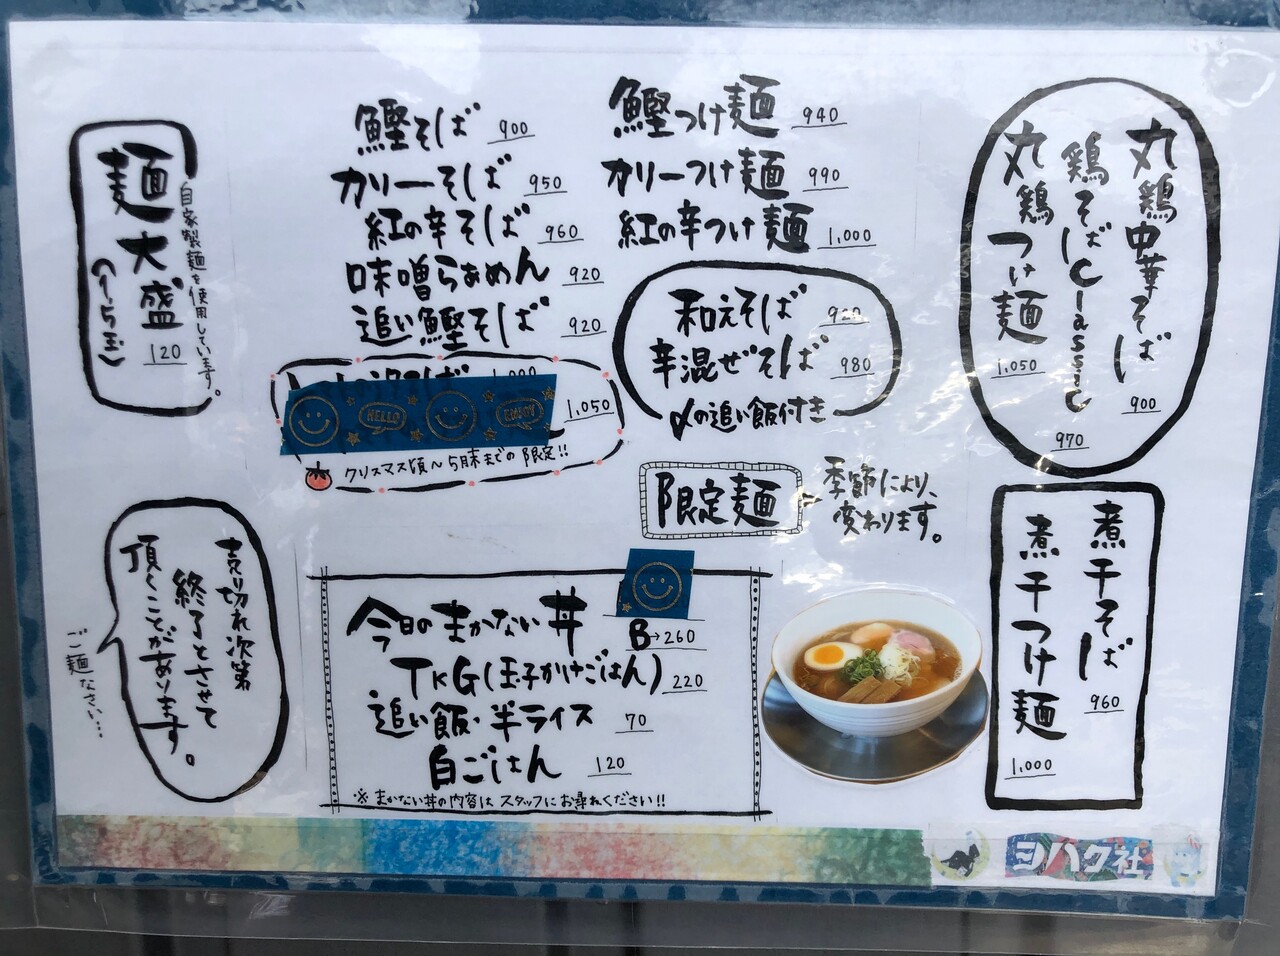 麺大盛
(1.5玉)
120
自家製麺を使用しています。
鰹そば 900
カリーそば 950
紅の辛そば 960
味噌らぁめん 920
追い鰹そば 920
1,000
1,050
HELLO
ENJOY
クリスマス頃〜5月末までの限定!!
鰹つけ麺 940
カリーつけ麺 990
紅の辛つけ麺 1,000
和えそば 920
辛混ぜそば 980
〆の追い飯付き
限定麺
季節により、
変わります。
丸鶏中華そば 900
鶏そばClassic 970
丸鶏つけ麺 1,050
煮干そば 960
煮干つけ麺 1,000
売り切れ次第
終了とさせて
頂くことがあります。
ご麺なさい…
今日のまかない丼
B→260
TKG(玉子かけごはん) 220
追い飯・半ライス 70
白ごはん 120
※まかない丼の内容はスタッフにお尋ねください!!
ヨハク社